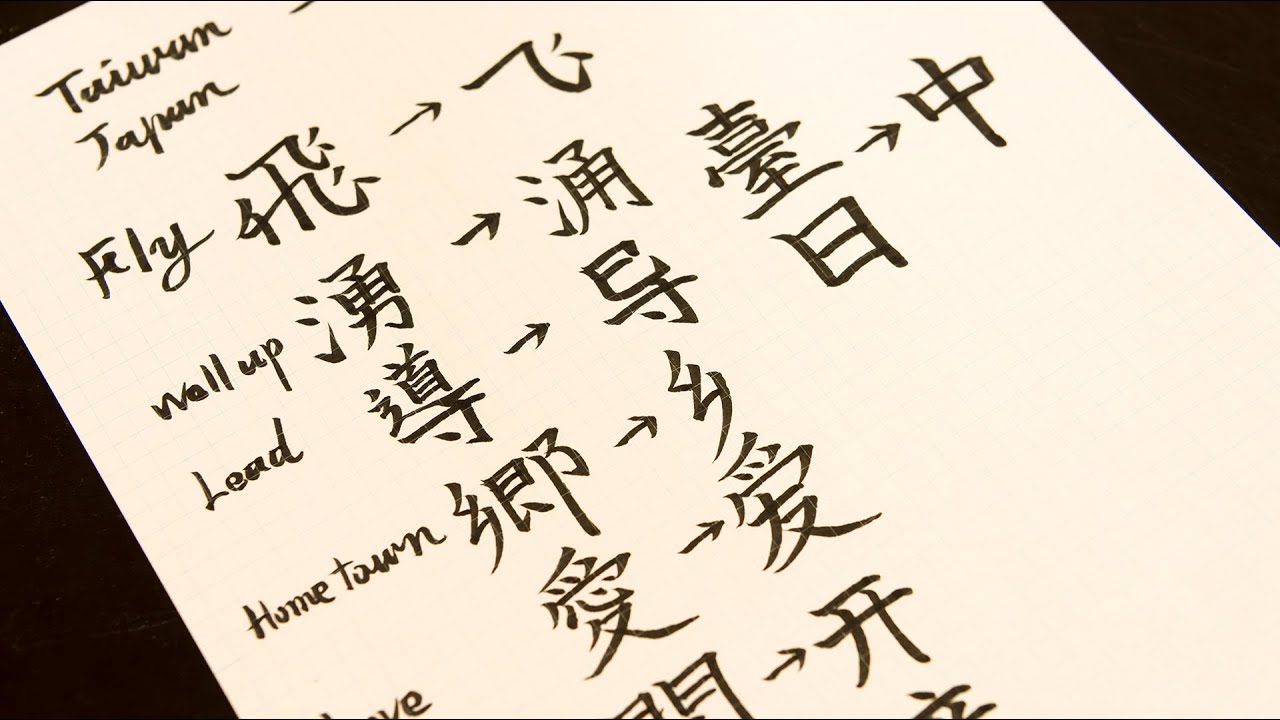 Taiwan
Japan
Fly 飛 → 飞
Well up 湧 → 涌
Lead 導 → 导
Home town 郷 → 乡
愛 → 爱
開 → 开
臺 → 中
日